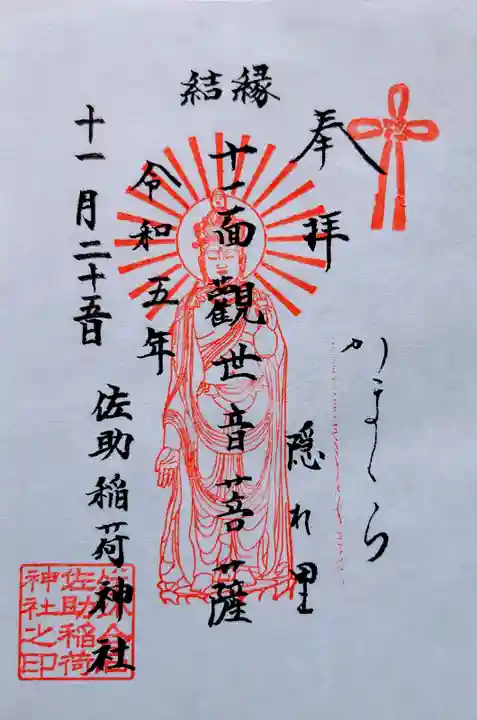 縁結
奉拝
かまくら
隠れ里
十一面觀世音菩薩
令和五年
十一月二十五日
佐助稲荷神社
佐助稲荷
神社之印